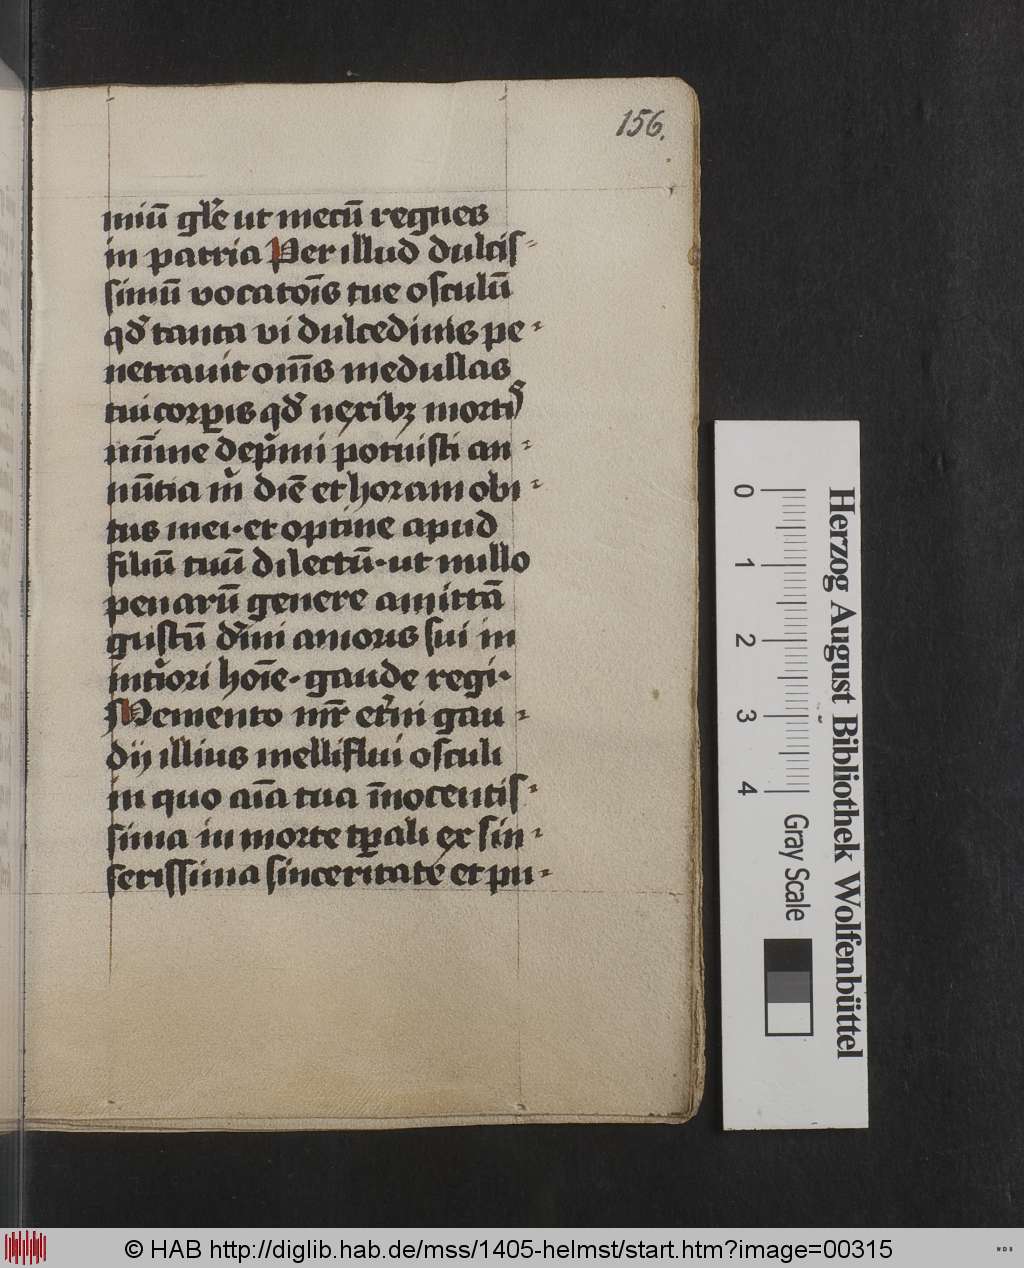 156.
miū gl̄e ut mecū regnes
in patria Per illud dulcis⸗
simū vocatōis tue osculū
qd̄ tanta vi dulcedinis pe⸗
netrauit om̄s medullas
tui corꝑis qd̄ nexibꝫ mortis
mīme dep̄mi potuisti an⸗
nūtia m̄ diē et horam obi⸗
tus mei · et optine apud
filiū tuū dilectū · ut nullo
penarū genere amittā
gustū d̄ini amoris sui in
int̄iori hoīe · gaude regi ·
Memento mr̄ et̄ni gau⸗
dij illius melliflui osculi
in quo aīa tua īnocentis⸗
sima in morte tꝑali ex sin⸗
serissima sinceritate et pu⸗
Herzog August Bibliothek Wolfenbüttel
0 1 2 3 4
Gray Scale
© HAB http://diglib.hab.de/mss/1405-helmst/start.htm?image=00315